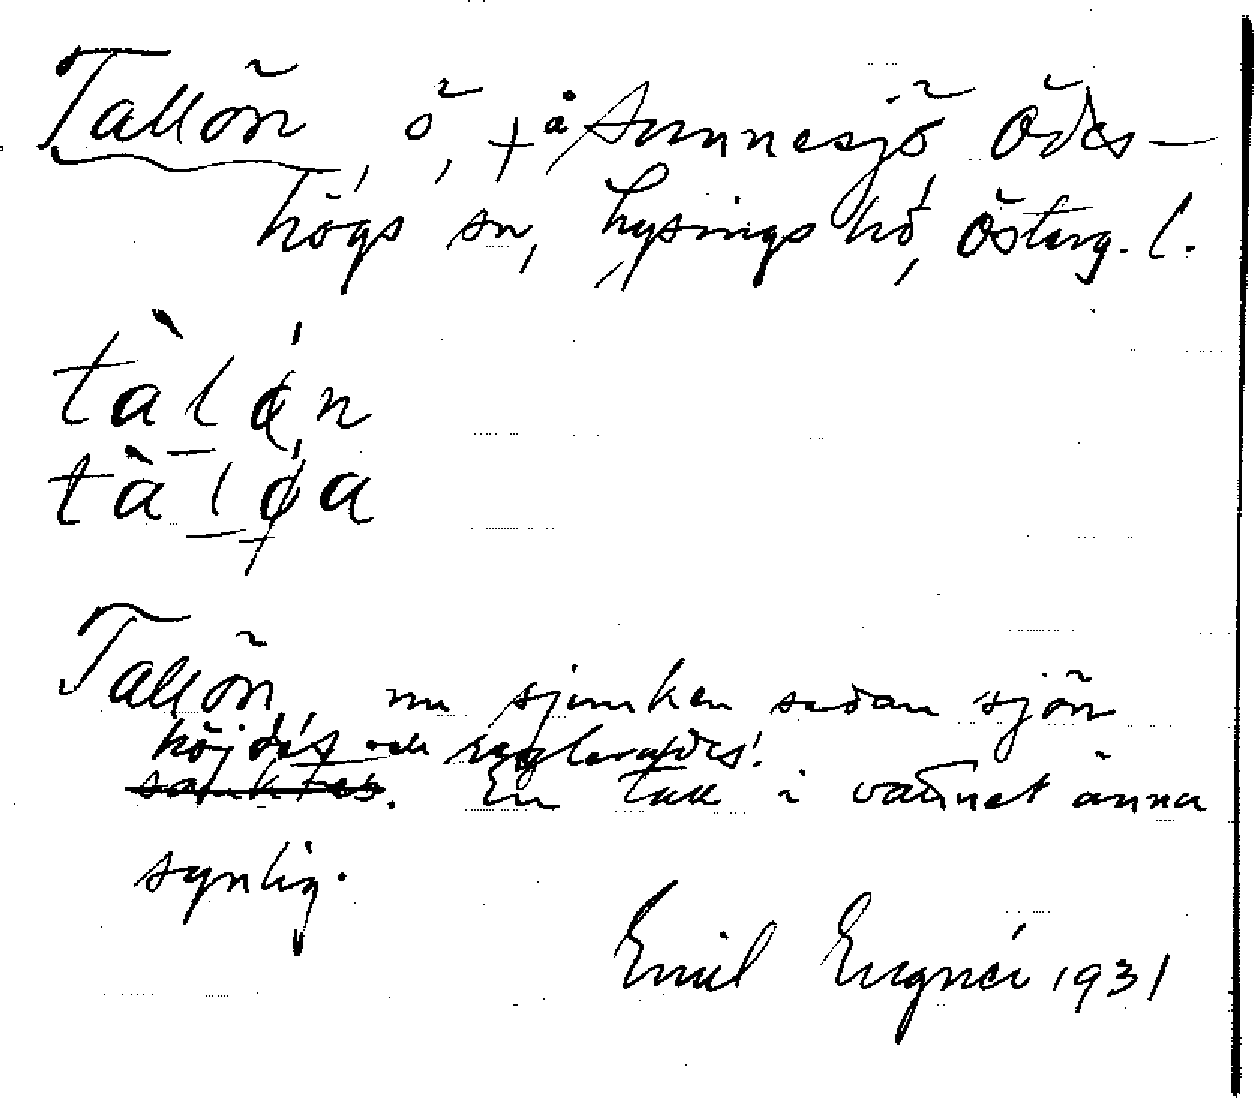 Tallön, ö, + å Sunnesjö Ödes-
högs sn, Lysings hd, Österg. l.
tàlǿn
tàlǿa
Tallön, nu sjunken sedan sjön
höjdes och reglerades!
sänktes. En tall i vattnet ännu
synlig.
Emil 1931